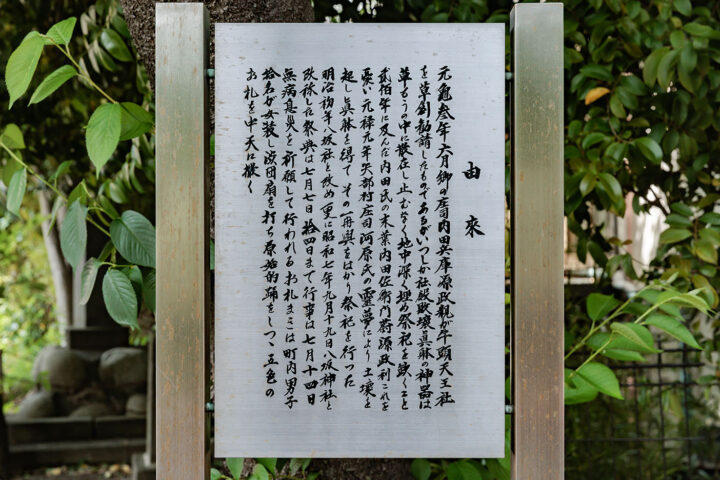 由來
元亀叄年六月郷の庄司内田兵庫源政親が牛頭天王社
を草創勧請したものであるがいつしか社殿敗壊具躰の神器は
草もうの中に散在し止むなく地中深く埋め祭祀を缺くこと
貳佰年に及んだ内田氏の末葉内田佐衛門尉源政利これを
憂い元禄元年矢部村庄司河原氏の靈夢により土壌を
起し眞躰を得て その再興をはかり祭祀を行った
明治初年八坂社と改め更に昭和七年九月十九日八坂神社と
改称した祭典は七月七日 拾四日まで行事は七月十四日
無病息災を祈願して行われるお札まきは町内男子
拾名が女装し渋団扇を打ち原始的踊をしつゝ五色の
お札を中天に撒く